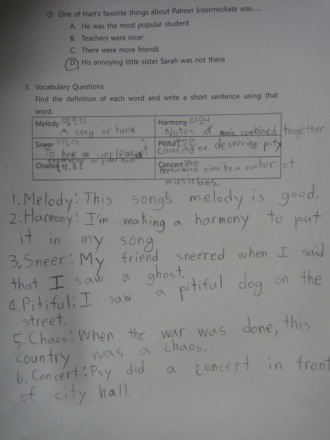 ③ One of Hart's favorite things about Palmer Intermediate was....
A. He was the most popular student
B. Teachers were nicer
C. There were more friends
D. His annoying little sister Sarah was not there
3. Vocabulary Questions
Find the definition of each word and write a short sentence using that
word.
Melody
A song or tune
Harmony
Notes of music combined together
Sneer
To have an unpleasant
Pitiful
causing or deserving pity
Chaos
Concert
Performance given by a number of
musicians.
1. Melody: This song's melody is good.
2. Harmony: I'm making a harmony to put
it in my song.
3, Sneer: My friend sneerred when I said
that I saw a ghost,
4. Pitiful: I saw a pitiful dog on the
street.
5. Chaos: When the war was done, this
country was a chaos.
6. Concert: Psy did a concert in front
of city hall.